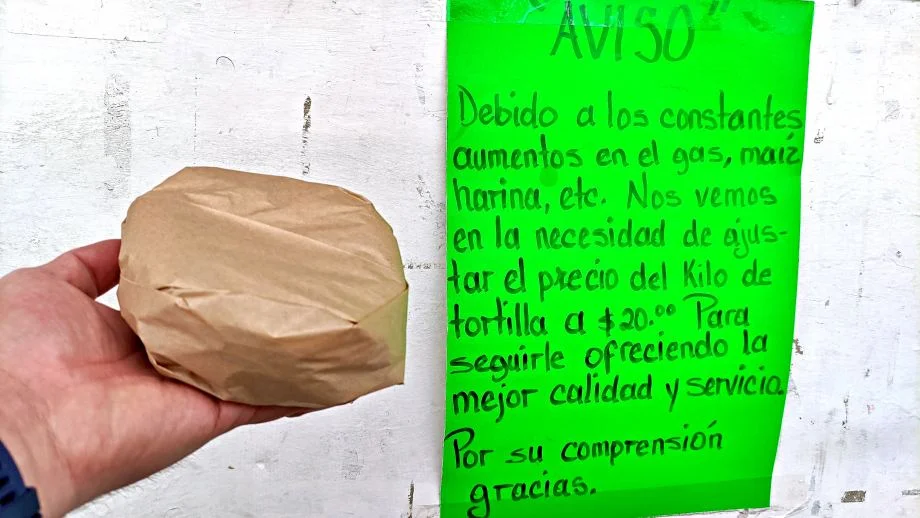 "AVISO"
Debido a los constantes
aumentos en el gas, maíz
harina, etc. Nos vemos
en la necesidad de ajus-
tar el precio del Kilo de
tortilla a $20.°° Para
seguirle ofreciendo la
mejor calidad y servicio.
Por su comprensión
gracias.